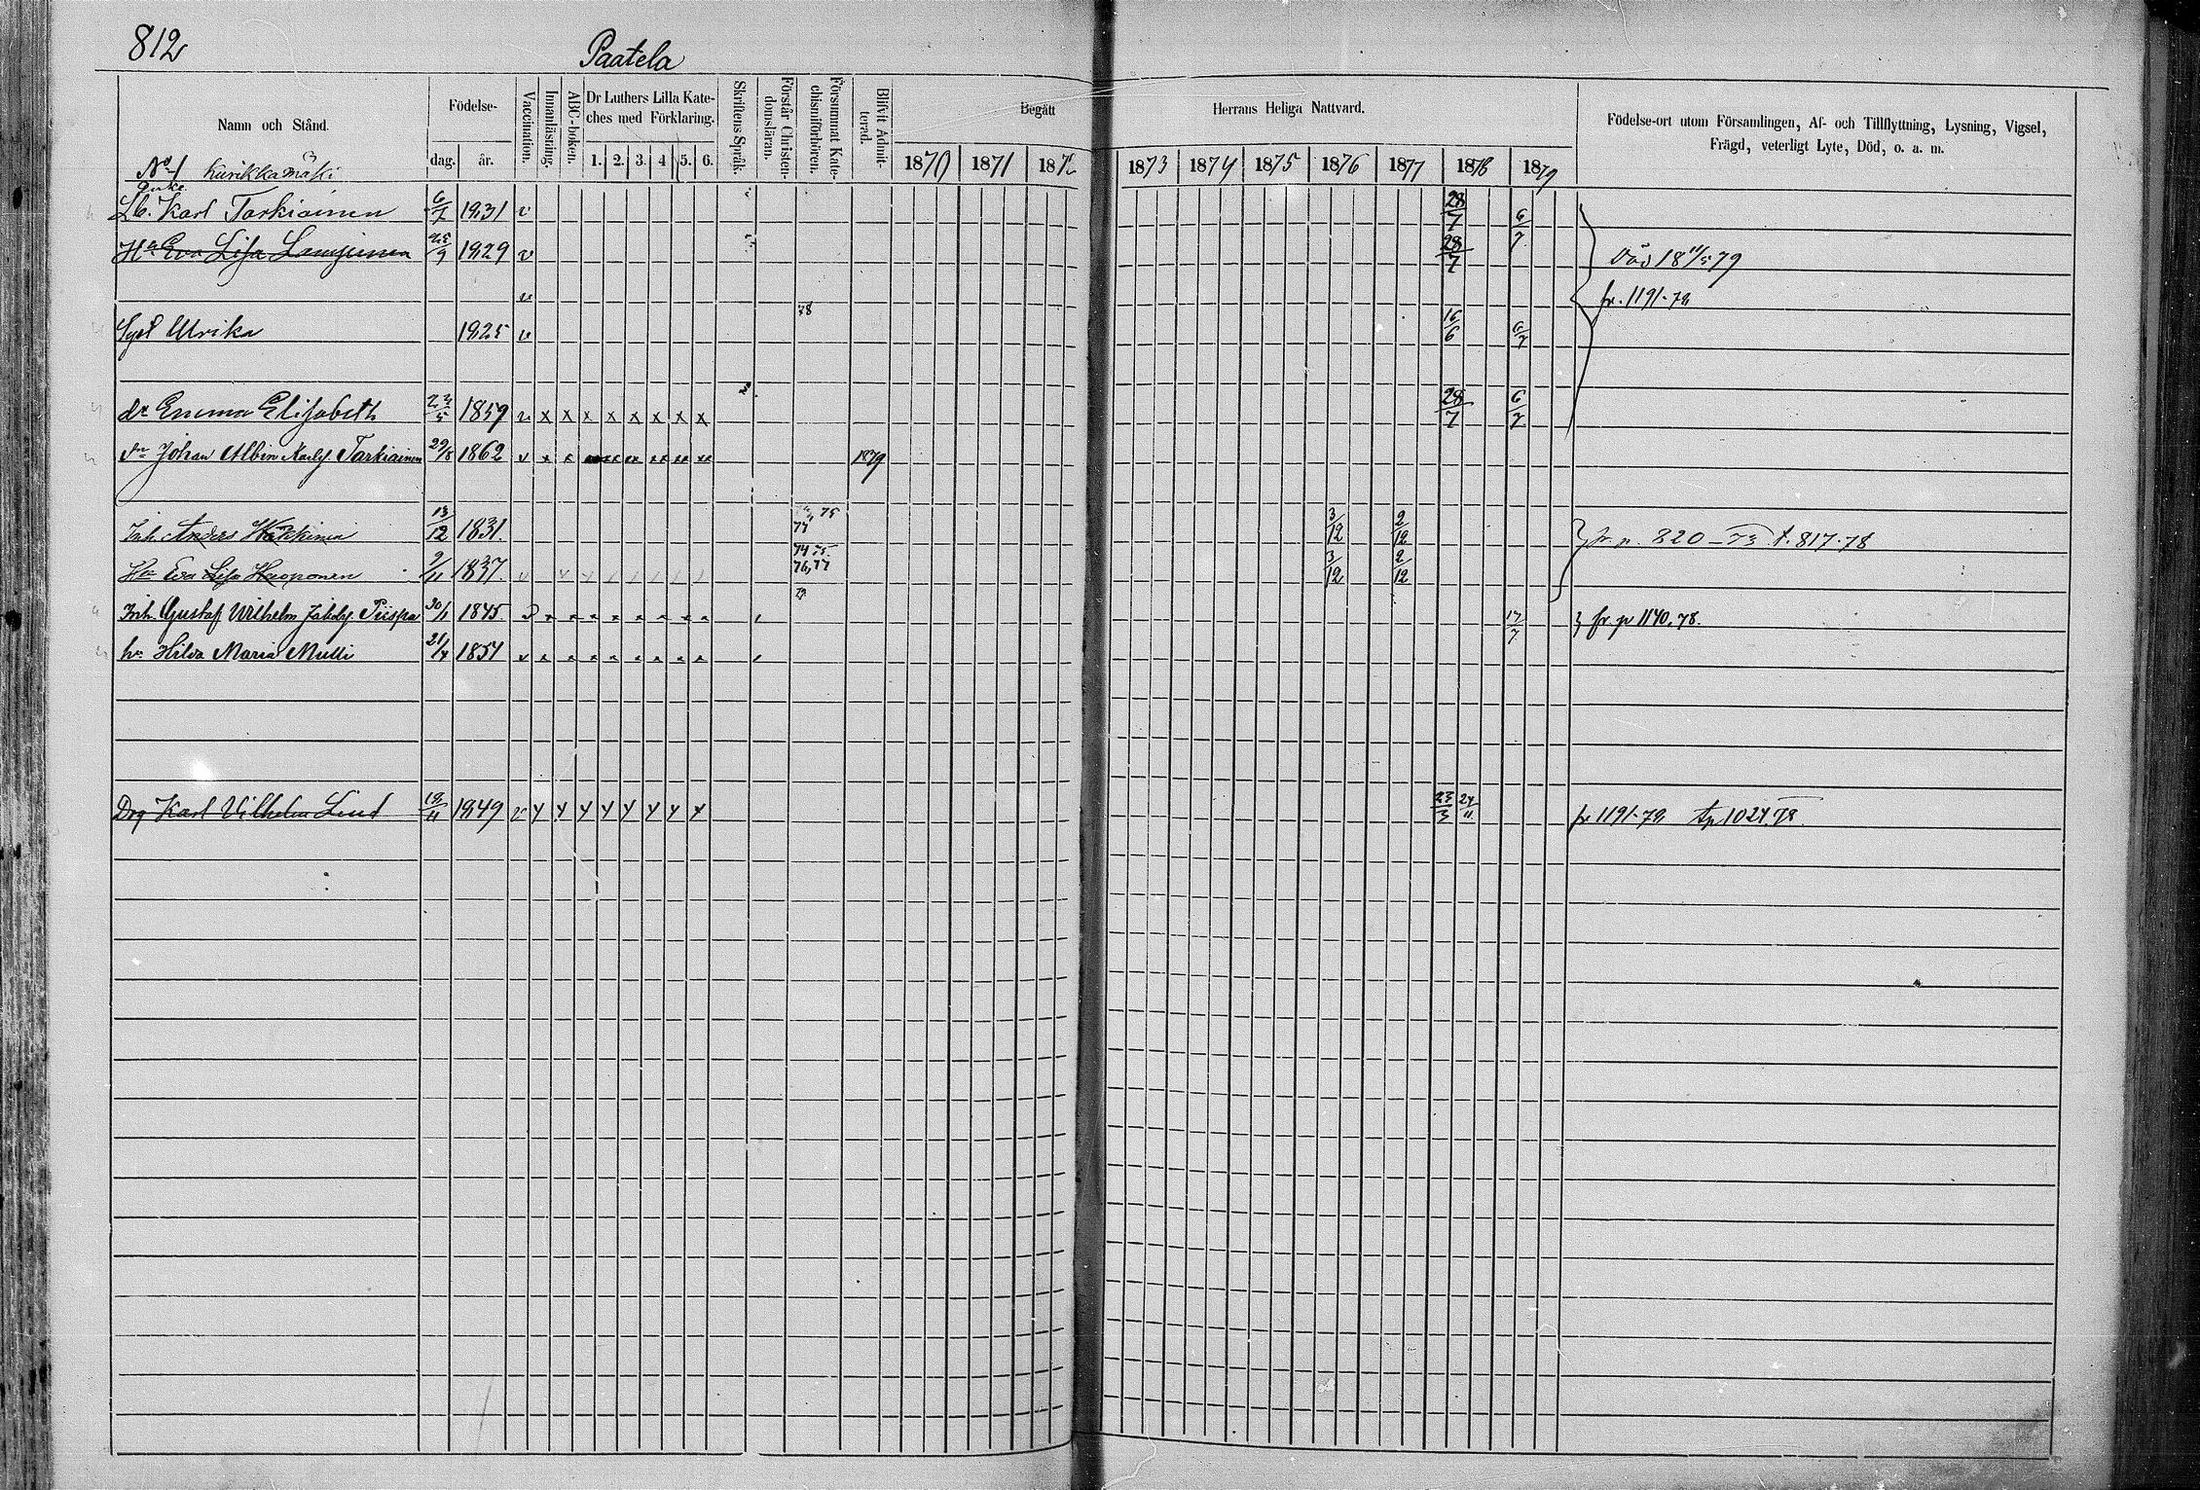 812
Paatela
Namn och Stånd.
Födelse-
dag.
år.
Vaccination.
Innanläsning.
ABC-boken.
Dr Luthers Lilla Kate-
ches med Förklaring.
1. 2. 3. 4 5. 6.
Skriftens Språk.
Förstår Christen-
domsläran.
Försummat Kate-
chismiförhören.
Blifvit Admit-
terad.
Begått Herrans Heliga Nattvard.
1870 1871 1872 1873 1874 1875 1876 1877 1878 1879
Födelse-ort utom Församlingen, Af- och Tillflyttning, Lysning, Vigsel,
Frägd, veterligt Lyte, Död, o. a. m.
No 1 Kurikkamäki
Enkl.
Lb. Karl Tarkiainen 6/7 1831 v 28/7 6/7
Ha Eva Lisa 25/9 1829 v 28/7 Död 18 79
v 78 fr. 1191-78
Ulrika 1825 v 16/6 6/7
dr Emma Elisabeth 5 1859 v x x x x x x x x 28/7 6/7
Johan Albin Tarkiainen 29/8 1862 1879
Inh. Anders 13/12 1831. 77 75 3/12 2/12 fr. p. 820-73 t. 817-78
Hu Eva Lisa Happonen 9/11 1837. 74 75. 76, 77 3/12 2/12
Inh. Gustaf Wilhelm Piispa 30/1 1845 17/7 fr. p 1140. 78.
hu Hilda Maria Multi 21/4 1854
Drg Karl Vilhelm Lind 19/11 1849 23/3 24/11 fr 1191-78 tp 1024 78